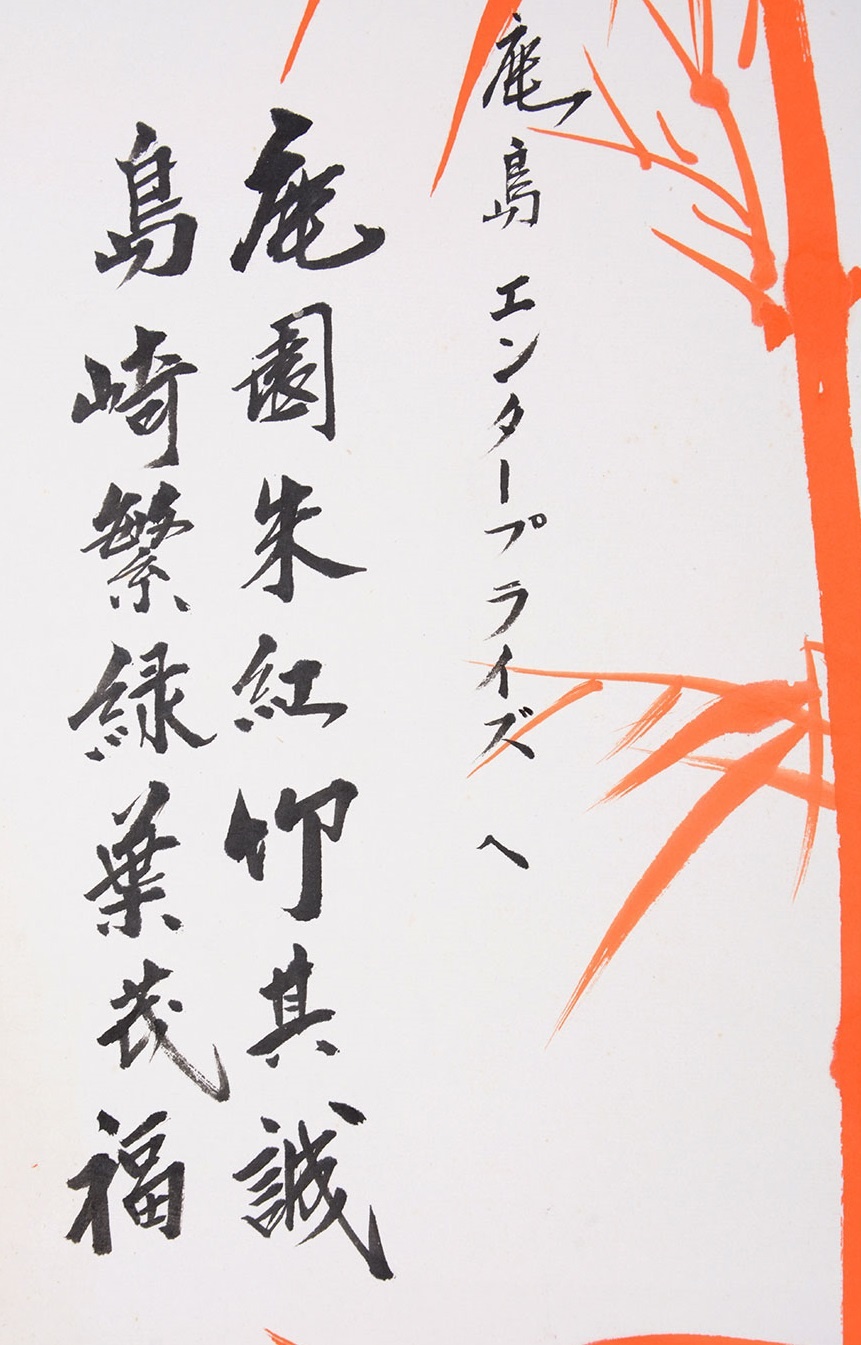 鹿島エンタープライズへ
鹿園朱紅仰其誠
島崎繁緑葉茂福